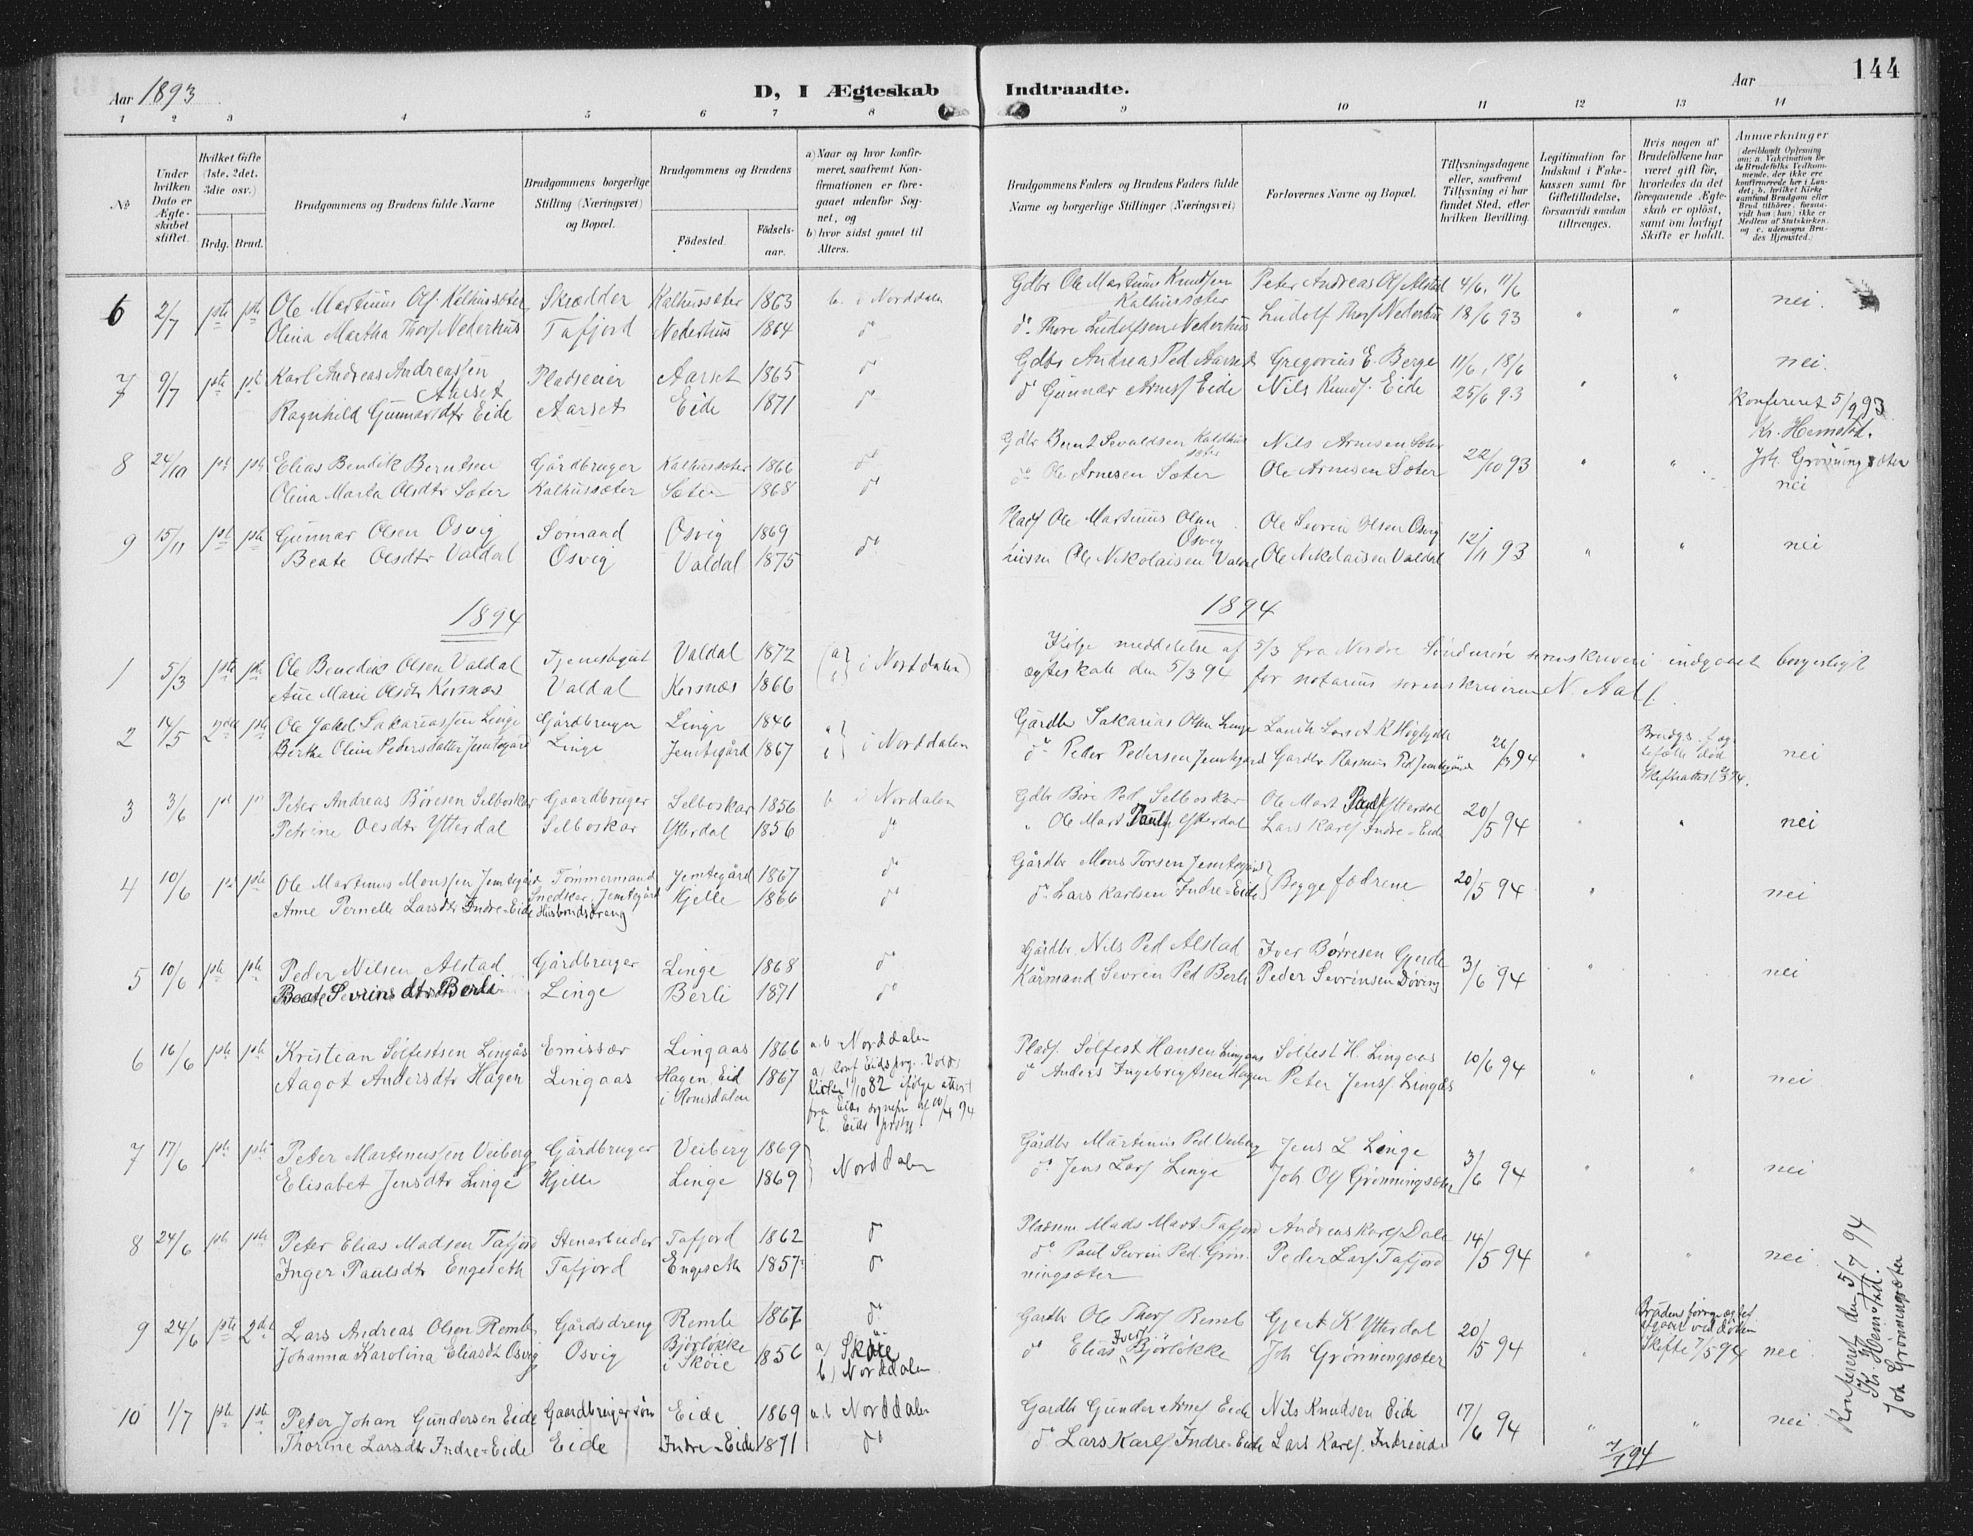 Aar 1893
D, I Ægteskab Indtraadte.
Aar
144
1 2 3 4 5 6 7 8 9 10 11 12 13 14
No
Under hvilken Dato er Ægteskabet stiftet.
Hvilket Gifte (1ste, 2det, 3die osv.)
Brdg. Brud.
Brudgommens og Brudens fulde Navne
Brudgommens borgerlige Stilling (Næringsvei) og Bopæl.
Brudgommens og Brudens
Fødested. Fødselsaar.
a) Naar og hvor konfirmeret, saafremt Konfirmationen er foregaaet udenfor Sognet, og
b) hvor sidst gaaet til Alters.
Brudgommens Faders og Brudens Faders fulde Navne og borgerlige Stillinger (Næringsvei)
Forlovernes Navne og Bopæl.
Tillysningsdagene eller, saafremt Tillysning ei har fundet Sted, efter hvilken Bevilling.
Legitimation for Indskud i Fakekassen samt for Giftetilladelse, forsaavidt saadan tiltrænges.
Hvis nogen af Brudefolkene har været gift før, hvorledes da det foregaaende Ægteskab er opløst, samt om lovligt Skifte er holdt.
Anmærkninger
6 2/7 1ste 1ste Ole Martinus Ols. Kalhussæter Skrædder Kalhussæter 1863 b. i Norddalen Gdbr Ole Martinus Knudsen Kalhussæter Peter Andreas Ols. Alstad 4/6, 11/6 nei.
Olina Martha Thors. Nederhus Tafjord Nederhus 1864 do do. Thore Ludolfsen Nederhus Ludolf Thors. Nederhus 18/6 93
7 9/7 Karl Andreas Andreassen Aarset Pladseeier Aarset 1865 do Gdbr Andreas Ped Aarset Gregorius E. Berge 11/6, 18/6 nei.
Ragnhild Gunnarsdtr Eide Aarset Eide 1871 do do Gunnar Arnes. Eide Nils Knuds. Eide 25/6 93
Konfereret 5/9 93
Kr. Hemstad.
Joh. Grønningsæter
8 24/10 Elias Bendik Berntsen Gårdbruger Kalhussæter 1866 do Gdbr Bernt Sevaldsen Kaldhussæter Nils Arnesen Sæter 22/10 93
Olina Marta Olsdtr Sæter Kalhussæter Sæter 1868 do do Ole Arnesen Sæter Ole Arnesen Sæter nei
9 15/11 Gunnar Olsen Osvig Sømand Osvig 1869 do Plads. Ole Martinus Olsen Osvig Ole Sevrin Olsen Osvig 12/11 93 nei
Beate Olsdtr Valdal Osvig Valdal 1875 Ole Nikolaisen Valdal Ole Nikolaisen Valdal
1894 1894
1 5/3 Ole Benedik Olsen Valdal Tjenestegut Valdal 1872 i Norddalen Ifølge meddelelse af 5/3 fra Nordre Søndmøre sorenskriveri indgaaet borgerligt
Ane Marie Olsdtr Korsnæs Valdal Korsnæs 1866 ægteskab den 5/3 94 for notarius sorenskriveren N. Aall.
2 14/5 2det Ole Jakob Sakariassen Linge Gårdbruger Linge 1846 i Norddalen Gårdbr Sakarias Olsen Linge
Berthe Oline Pedersdatter Jemtegård Linge Jemtegård 1867 do Peder Pedersen Jemtegård Gardbr. Rasmus Ped Jemtegård 26/3 94 nei
3 3/6 Peter Andreas Børesen Selboskar Gaardbruger Selboskar 1856 b i Nordalen Gdbr Børe Ped Selboskar Ole Mart Pauls Ytterdal 20/5 94 nei
Petrine Olsdtr Ytterdal Selboskar Ytterdal 1856 do Ole Mart Pauls Ytterdal Lars Karls Indre-Eide
4 10/6 Ole Martinus Monssen Jemtegård Tømmermand Jemtegård 1867 do Gårdbr Mons Torsen Jemtegård Begge fædrene 20/5 94 nei
Anne Pernelle Larsdtr Indre-Eide Snedker Jemtegård Husbondsdreng Hjelle 1866 do do Lars Karlsen Indre-Eide
5 10/6 Peder Nilsen Alstad Gårdbruger Linge 1868 do Gårdbr Nils Ped Alstad Iver Børresen Gjerde 3/6 94 nei
Beate Sevrinsdtr Berli Linge Berli 1871 do Kårmand Sevrin Ped Berli Peder Sevrinsen Døving
6 16/6 Kristian Solfestsen Lingås Emissær Lingaas 1866 a.b Norddalen Plads. Solfest Hansen Lingaas Solfest H. Lingaas 10/6 94
Aagot Andersdtr Hagen Lingaas Hagen, Eid i Romsdalen 1867 do Anders Ingebrigtsen Hagen Peter Jens. Lingås nei
7 17/6 Peter Martinussen Veiberg Gårdbruger Veiberg 1869 Norddalen Gårdbr Martinus Ped Veiberg Jens L Linge 3/6 94 nei
Elisabet Jensdtr Linge Hjelle Linge 1869 do Jens Lars. Linge Joh Ols Grønningsæter
8 24/6 Peter Elias Madsen Tafjord Stenarbeider Tafjord 1862 do Mads Mart Tafjord Andreas Karls Dale 14/5 94 nei
Inger Paulsdtr Engeseth Tafjord Engeseth 1857 do do Paul Sevrin Ped. Grønningsæter Peder Lars Tafjord
9 24/6 2det Lars Andreas Olsen Remb Gårdsdreng Remb 1867 do Gardbr Ole Thors Remb Gjert K Ytterdal 20/5 94 Skifte 7/5 94 nei
Johanna Karolina Eliasdtr Osvig Osvig Bjørløkke i Skøie 1856 a) Skøie b) Norddalen do Elias Ivers. Bjørløkke Joh Grønningsæter
10 1/7 Peter Johan Gundersen Eide Gaardbrugersøn Eide 1869 a.b Norddalen Gardbr Gunder Arnes Eide Nils Knudsen Eide 17/6 94 nei
Thorine Larsdtr Indre-Eide Eide Indre-Eide 1871 do do Lars Karls Indre-Eide Lars Karls. Indreeide
7/7 94
Konfereret den 5/7 94
Kr. Hemstad.
Joh Grønningsæter